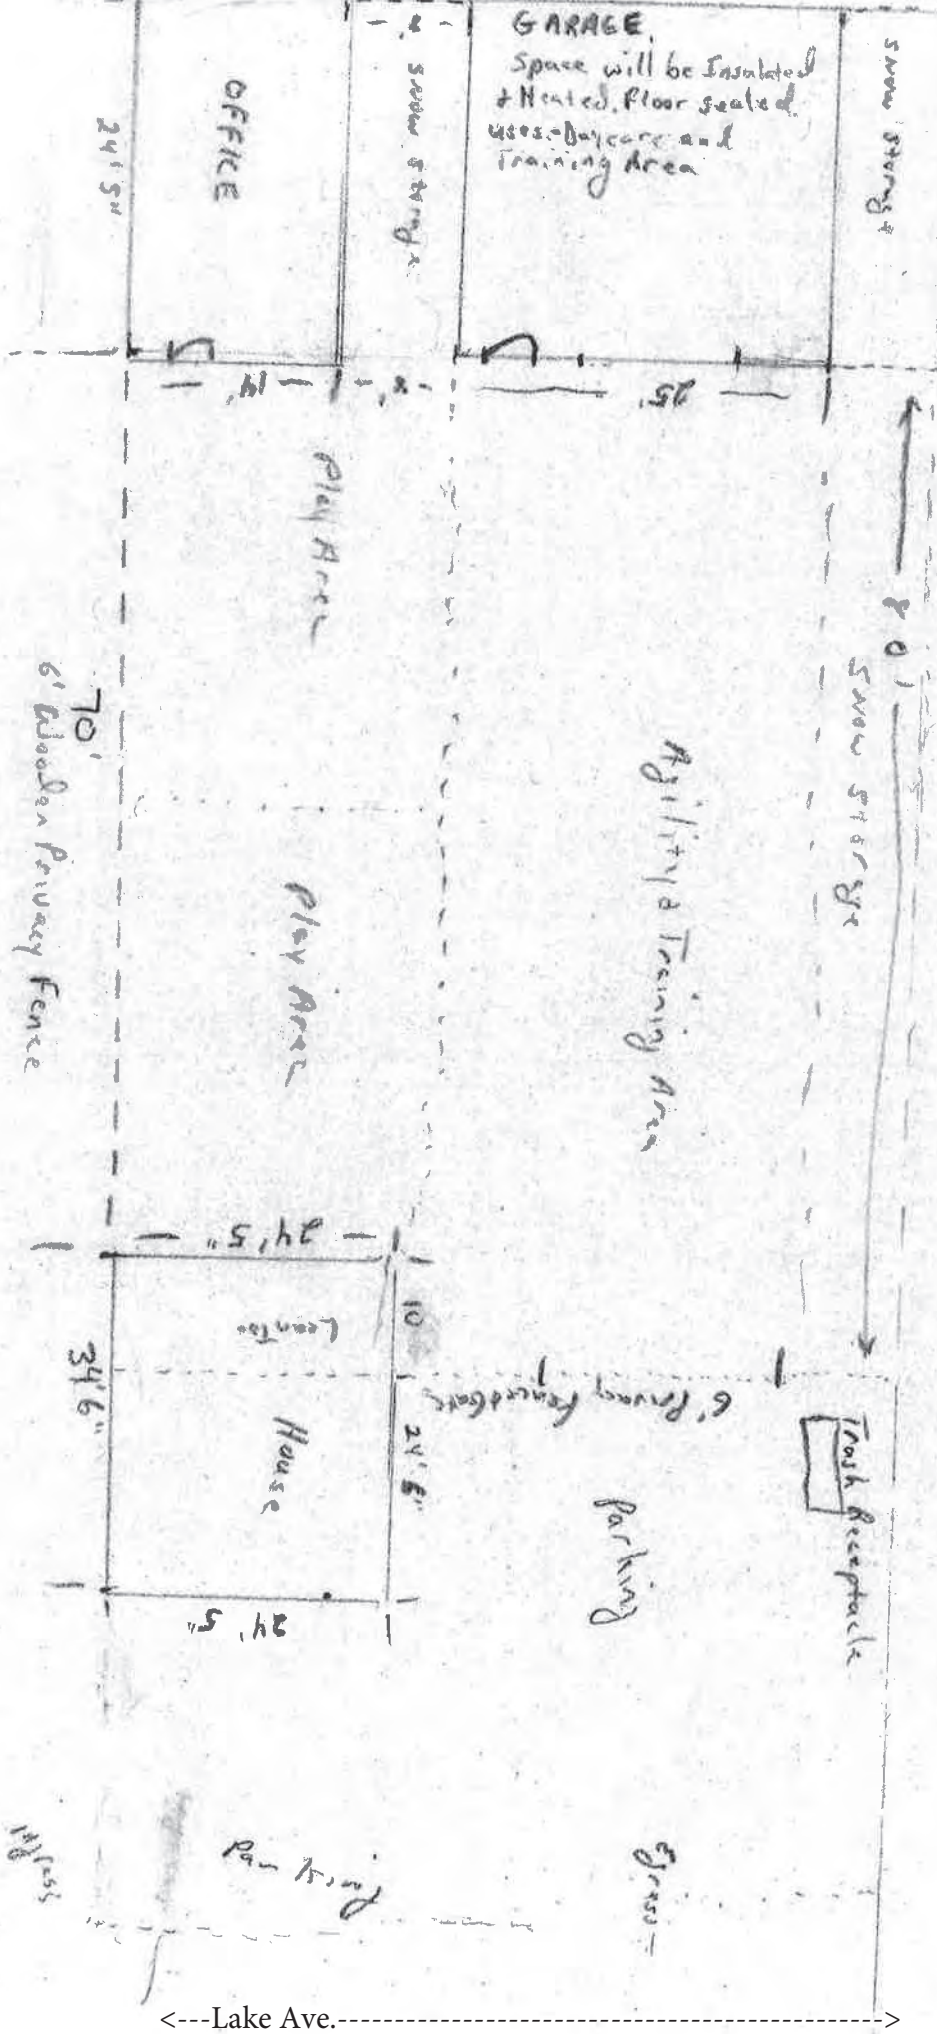 GARAGE.
Space will be Insulated
& Heated. Floor sealed.
uses-Daycare and
Training Area
OFFICE
24' 5"
8'
snow storage
snow storage
14'
8'
25'
Play Area
80'
snow storge
70'
6' Wooden Privacy Fence
Agility & Training Area
Play Area
24' 5"
10
34' 6"
House
24' 6"
6' Privacy Fence & Gate
Trash Receptacle
Parking
24' 5"
Parking
Egress
<---Lake Ave.------------------------------------------------>